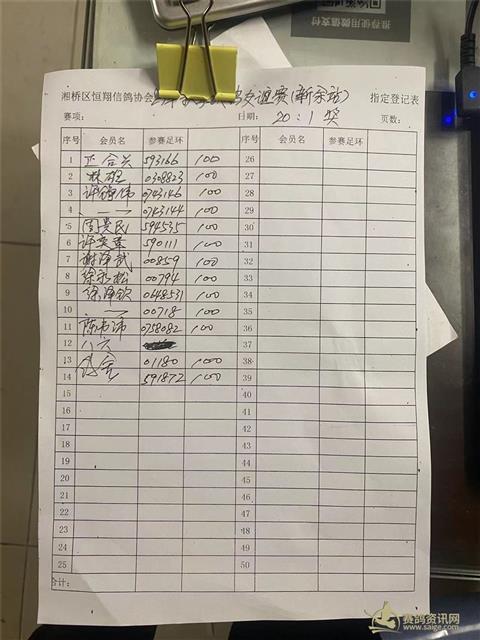 推荐使用微信支付
湘桥区恒翔信鸽协会 交谊赛(新余站) 指定登记表
赛项: 日期: 20:1 奖 页数:
序号 会员名 参赛足环 序号 会员名 参赛足环
1 593166 100 26
2 林雄 0308823 100 27
3 0743146 100 28
4 0743144 100 29
5 594535 100 30
6 590111 100 31
7 谢泽武 00859 100 32
8 徐永松 00794 100 33
9 徐泽钦 0648531 100 34
10 00718 100 35
11 0758092 100 36
12 八六 37
13 01180 100 38
14 591872 100 39
15 40
16 41
17 42
18 43
19 44
20 45
21 46
22 47
23 48
24 49
25 50
合计:
赛鸽资讯网
www.saige.com